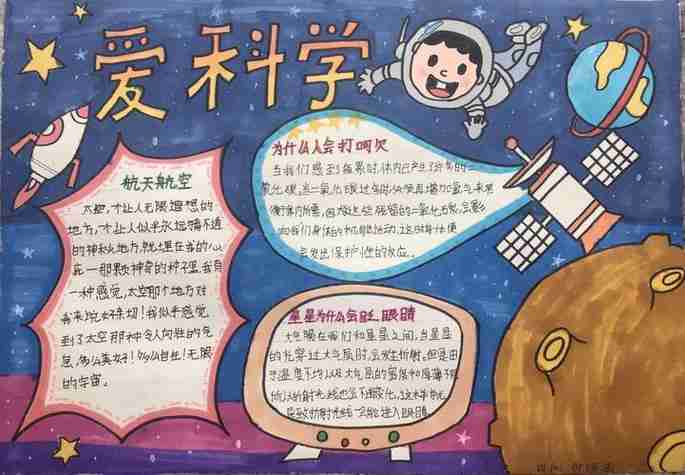 爱科学
航天航空
太空,才让人无限遐想的
地方,才让人似乎永远猜不透
的神秘地方,就埋在我的心
底一那颗神奇的种子里,我有
一种感觉,太空那个地方对
我来说好亲切!我似乎感觉
到了太空那种令人向往的气
息,伟么美好!多么自在!无限
的宇宙。
为什么人会打呵欠
当我们感到疲累时,体内已产生了许多的二
氧化碳,当二氧化碳过多时,必须再增加氧气来平
衡体内所需,因为这些残留的二氧化碳,会影
响我们身体的机能活动,这时身体便
会发出保护性的反应。
星星为什么会眨眼睛
大气隔在我们和星星之间,当星星
的光穿过大气层时,会发生折射,但是由
于温度不均以及大气层的密度和厚薄不同
所以折射光线也会不断变化,这种忽
导致折射光线会进入眼睛